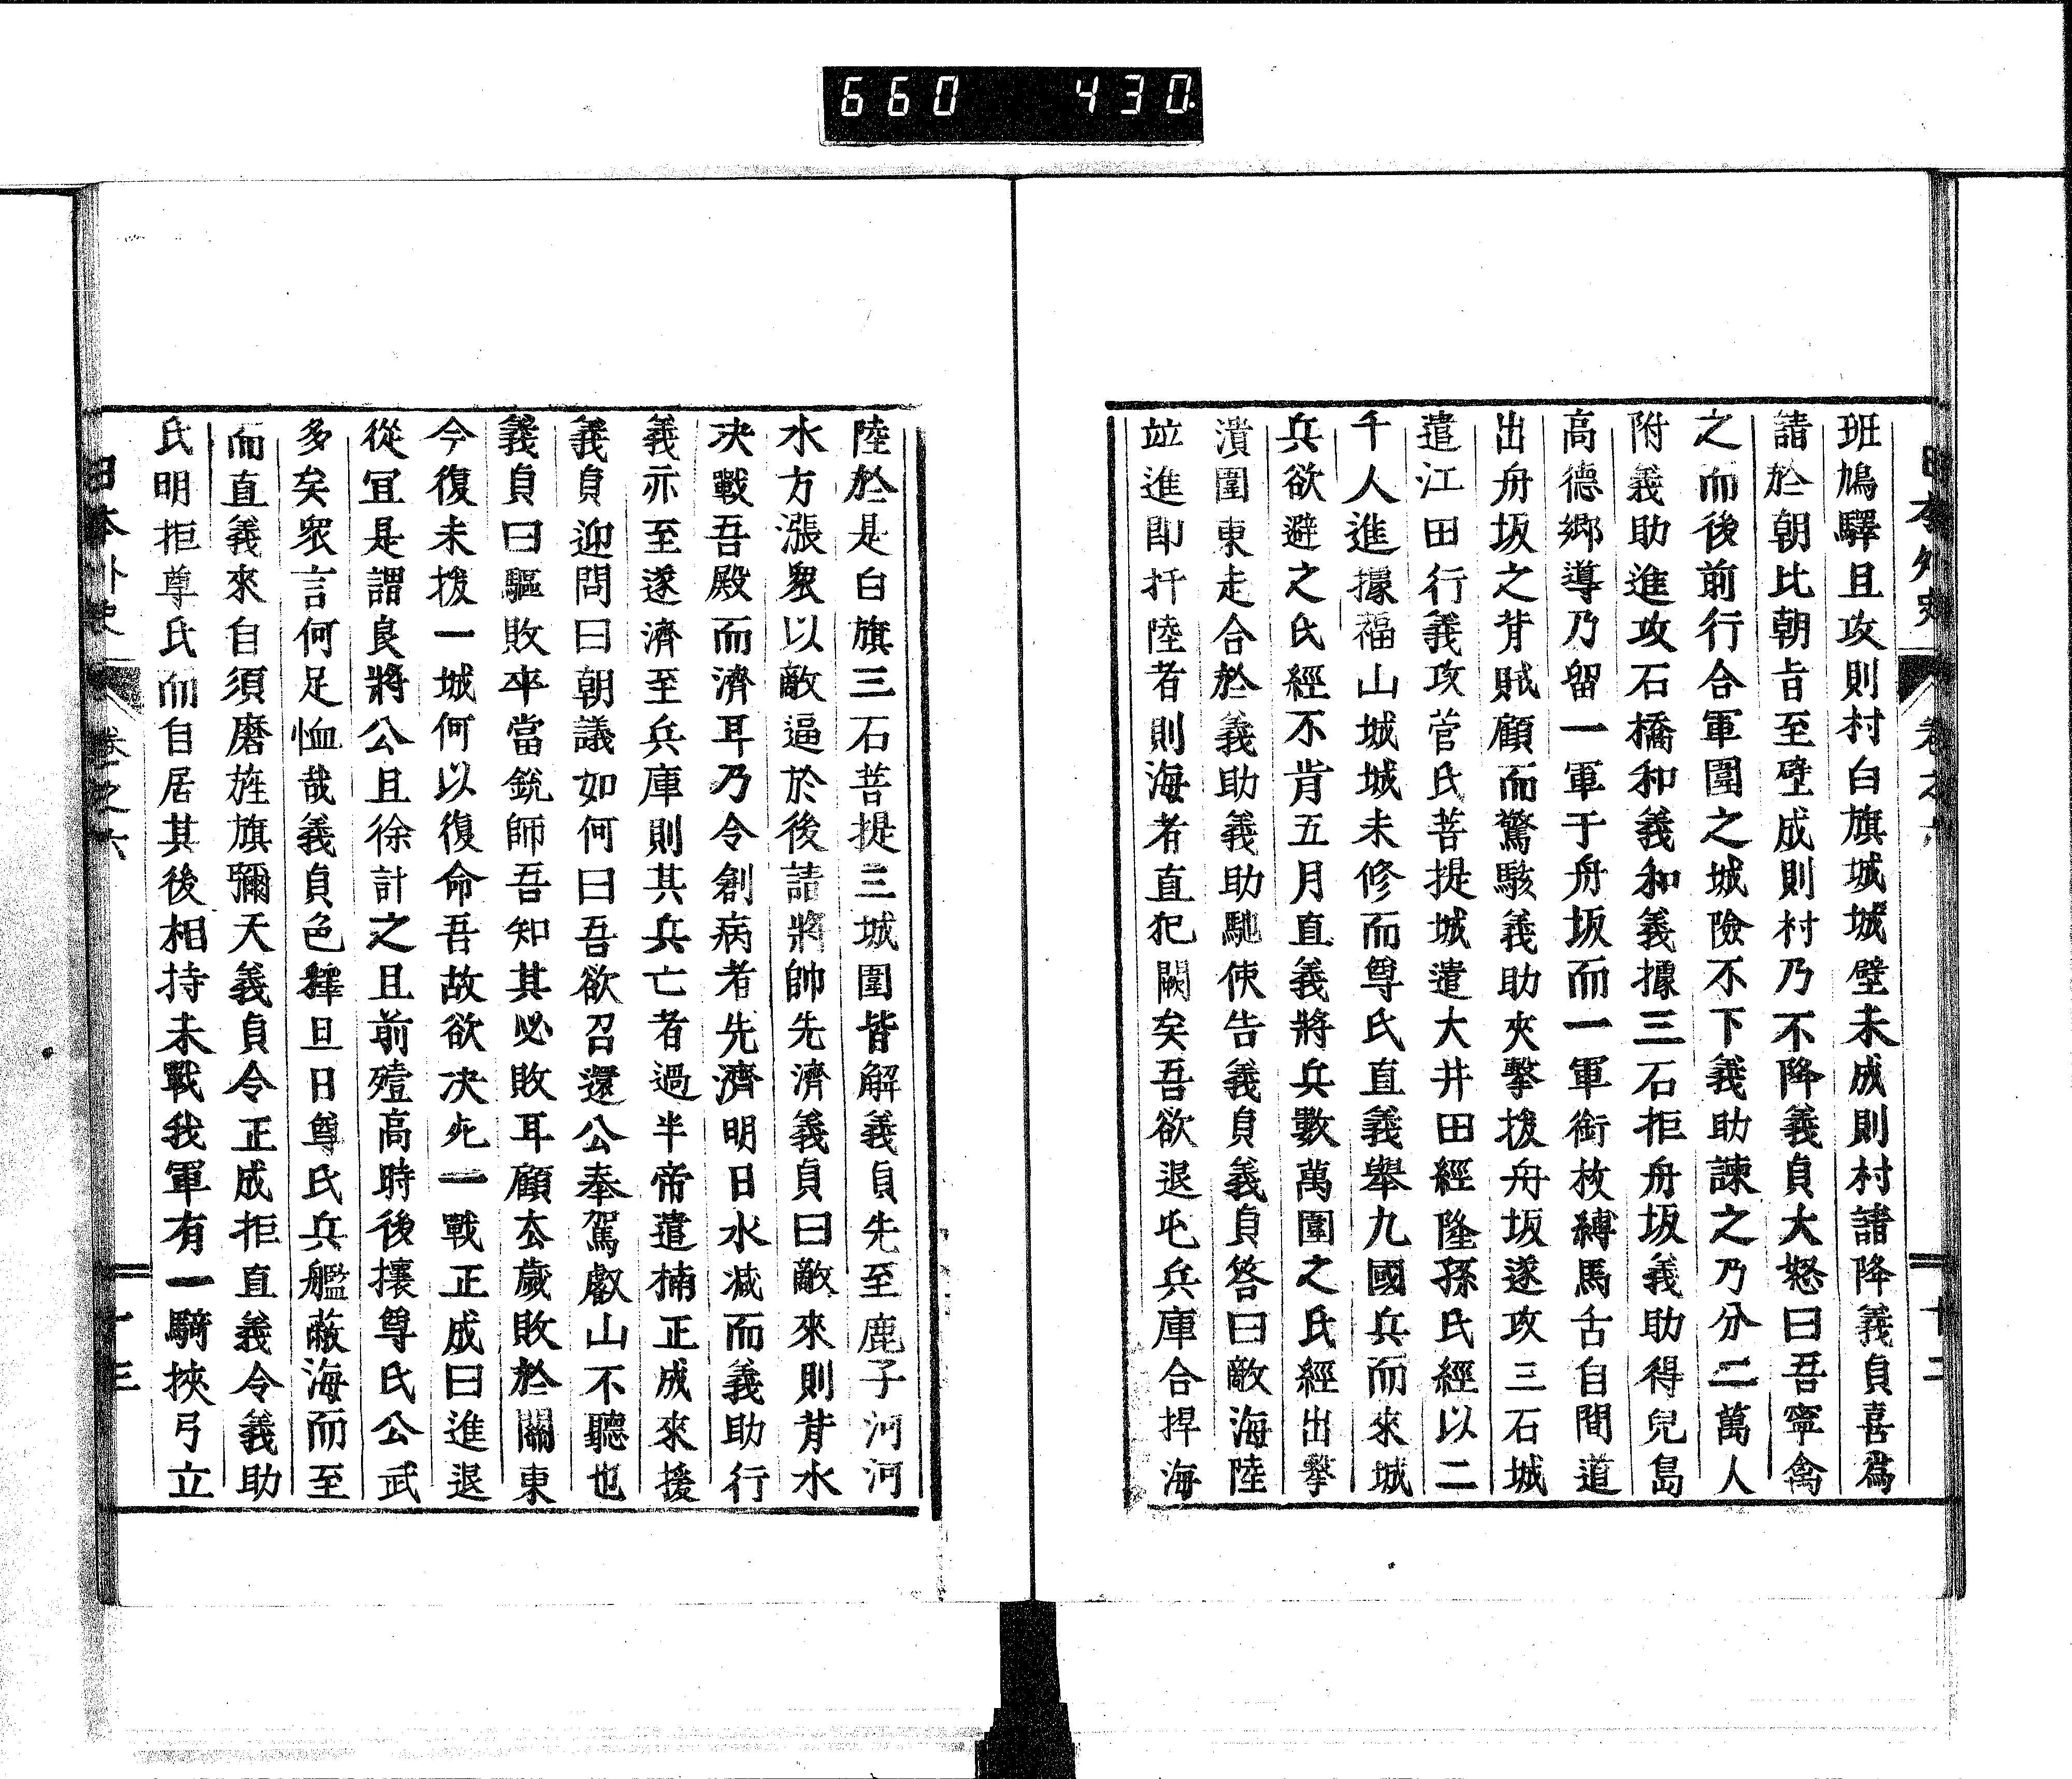 660 430
日本外史 卷之六 十二
班鳩驛且攻則村白旗城城壁未成則村諸降義貞喜爲
請於朝比朝旨至壁成則村乃不降義貞大怒曰吾寧禽
之而後前行合軍圍之城險不下義助諫之乃分二萬人
附義助進攻石橋和義和義據三石拒舟坂義助得兒島
高德鄉導乃留一軍于舟坂而一軍銜枚縛馬舌自間道
出舟坂之背賊顧而驚駭義助夾擊拔舟坂遂攻三石城
遣江田行義攻菅氏菩提城遣大井田經隆孫氏經以二
千人進據福山城城未修而尊氏直義舉九國兵而來城
兵欲避之氏經不肯五月直義將兵數萬圍之氏經出擊
潰圍東走合於義助義助馳使告義貞義貞答曰敵海陸
竝進即扞陸者則海者直犯闕矣吾欲退屯兵庫合捍海
陸於是白旗三石菩提三城圍皆解義貞先至鹿子河河
水方漲衆以敵逼於後請將帥先濟義貞曰敵來則背水
决戰吾殿而濟耳乃令創病者先濟明日水减而義助行
義亦至遂濟至兵庫則其兵亡者過半帝遣楠正成來援
義貞迎問曰朝議如何曰吾欲召還公奉駕叡山不聽也
義貞曰驅敗卒當銳師吾知其必敗耳顧去歲敗於關東
今復未拔一城何以復命吾故欲决死一戰正成曰進退
從宜是謂良將公且徐計之且前殪高時後攘尊氏公武
多矣衆言何足恤哉義貞色釋旦日尊氏兵艦蔽海而至
而直義來自須磨旌旗彌天義貞令正成拒直義令義助
氏明拒尊氏而自居其後相持未戰我軍有一騎挾弓立
日本外史 卷之六 十三